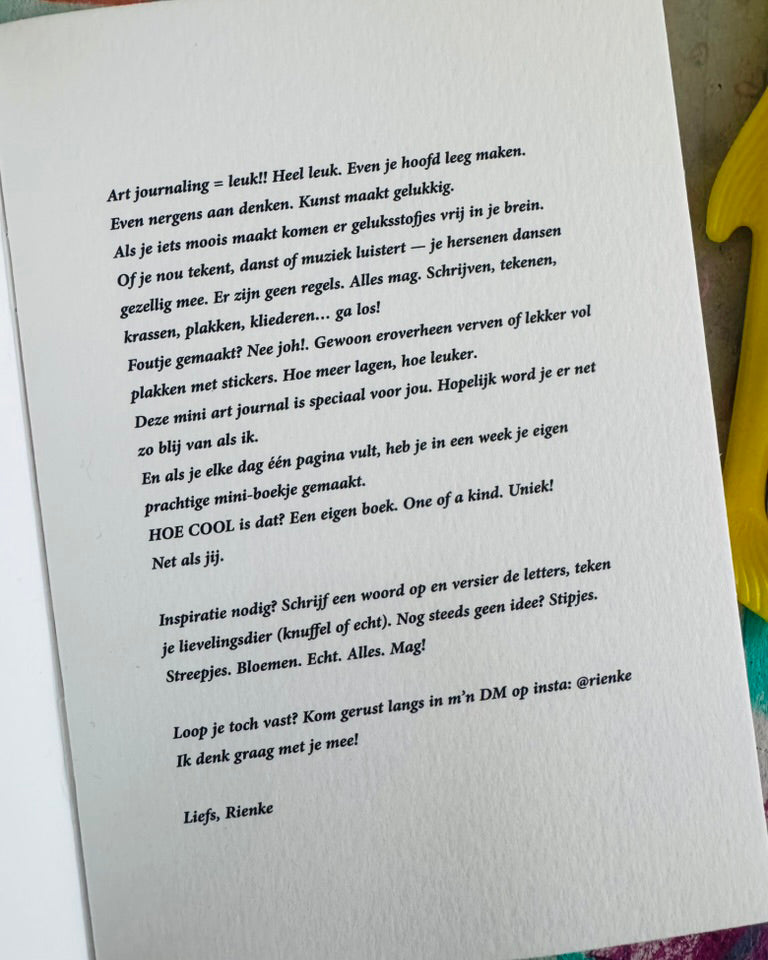 Art journaling = leuk!! Heel leuk. Even je hoofd leeg maken.
Even nergens aan denken. Kunst maakt gelukkig.
Als je iets moois maakt komen er geluksstofjes vrij in je brein.
Of je nou tekent, danst of muziek luistert — je hersenen dansen
gezellig mee. Er zijn geen regels. Alles mag. Schrijven, tekenen,
krassen, plakken, kliederen… ga los!
Foutje gemaakt? Nee joh!. Gewoon eroverheen verven of lekker vol
plakken met stickers. Hoe meer lagen, hoe leuker.
Deze mini art journal is speciaal voor jou. Hopelijk word je er net
zo blij van als ik.
En als je elke dag één pagina vult, heb je in een week je eigen
prachtige mini-boekje gemaakt.
HOE COOL is dat? Een eigen boek. One of a kind. Uniek!
Net als jij.
Inspiratie nodig? Schrijf een woord op en versier de letters, teken
je lievelingsdier (knuffel of echt). Nog steeds geen idee? Stipjes.
Streepjes. Bloemen. Echt. Alles. Mag!
Loop je toch vast? Kom gerust langs in m’n DM op insta: @rienke
Ik denk graag met je mee!
Liefs, Rienke